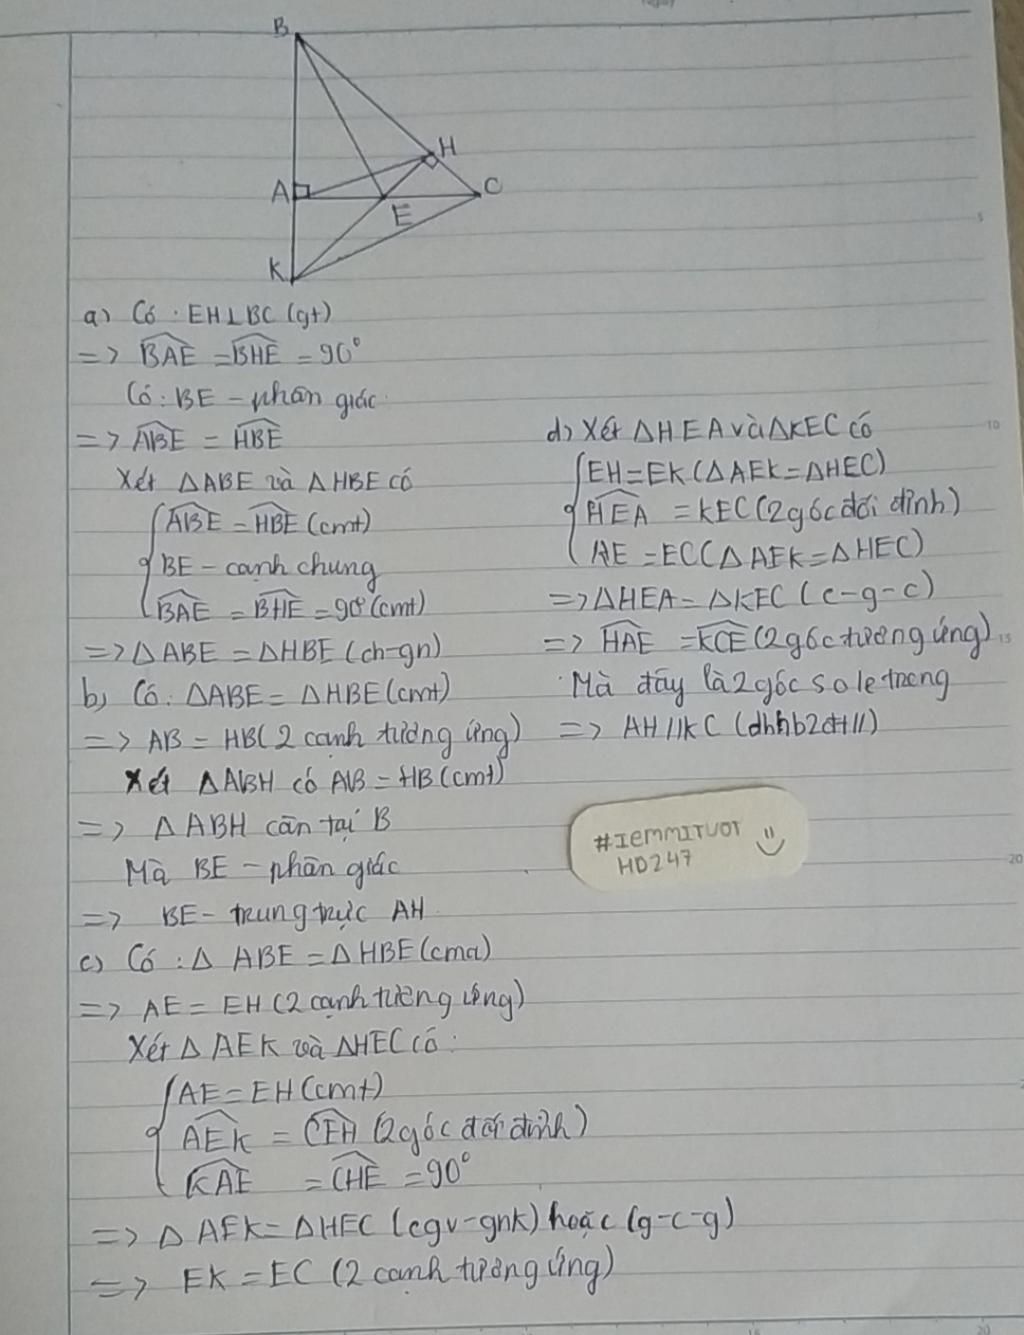 B
H
A
C
E
K
a) Có : EH⊥BC (gt)
=> BAE = BHE = 90°
Có : BE - phân giác
=> ABE = HBE
Xét △ABE và △HBE có
ABE = HBE (cmt)
BE - cạnh chung
BAE = BHE = 90° (cmt)
=> △ABE = △HBE (ch-gn)
b) Có : △ABE = △HBE (cmt)
=> AB = HB (2 cạnh tương ứng)
Xét △ABH có AB = HB (cmt)
=> △ABH cân tại B
Mà BE - phân giác
=> BE - trung trực AH
c) Có : △ ABE = △HBE (cma)
=> AE = EH (2 cạnh tương ứng)
Xét △ AEK và △HEC có :
AE = EH (cmt)
AEK = CEH (2 góc đối đỉnh)
KAE = CHE = 90°
=> △ AEK = △HEC (cgv-gnk) hoặc (g-c-g)
=> EK = EC (2 cạnh tương ứng)
d) Xét △HEA và △KEC có
EH = EK (△AEK = △HEC)
HEA = KEC (2 góc đối đỉnh)
AE = EC (△AEK = △HEC)
=> △HEA = △KEC (c-g-c)
=> HAE = KCE (2 góc tương ứng)
Mà đây là 2 góc so le trong
=> AH // KC (dhnb2đt//)
#IEMMITUOT
HD247
5
10
15
20